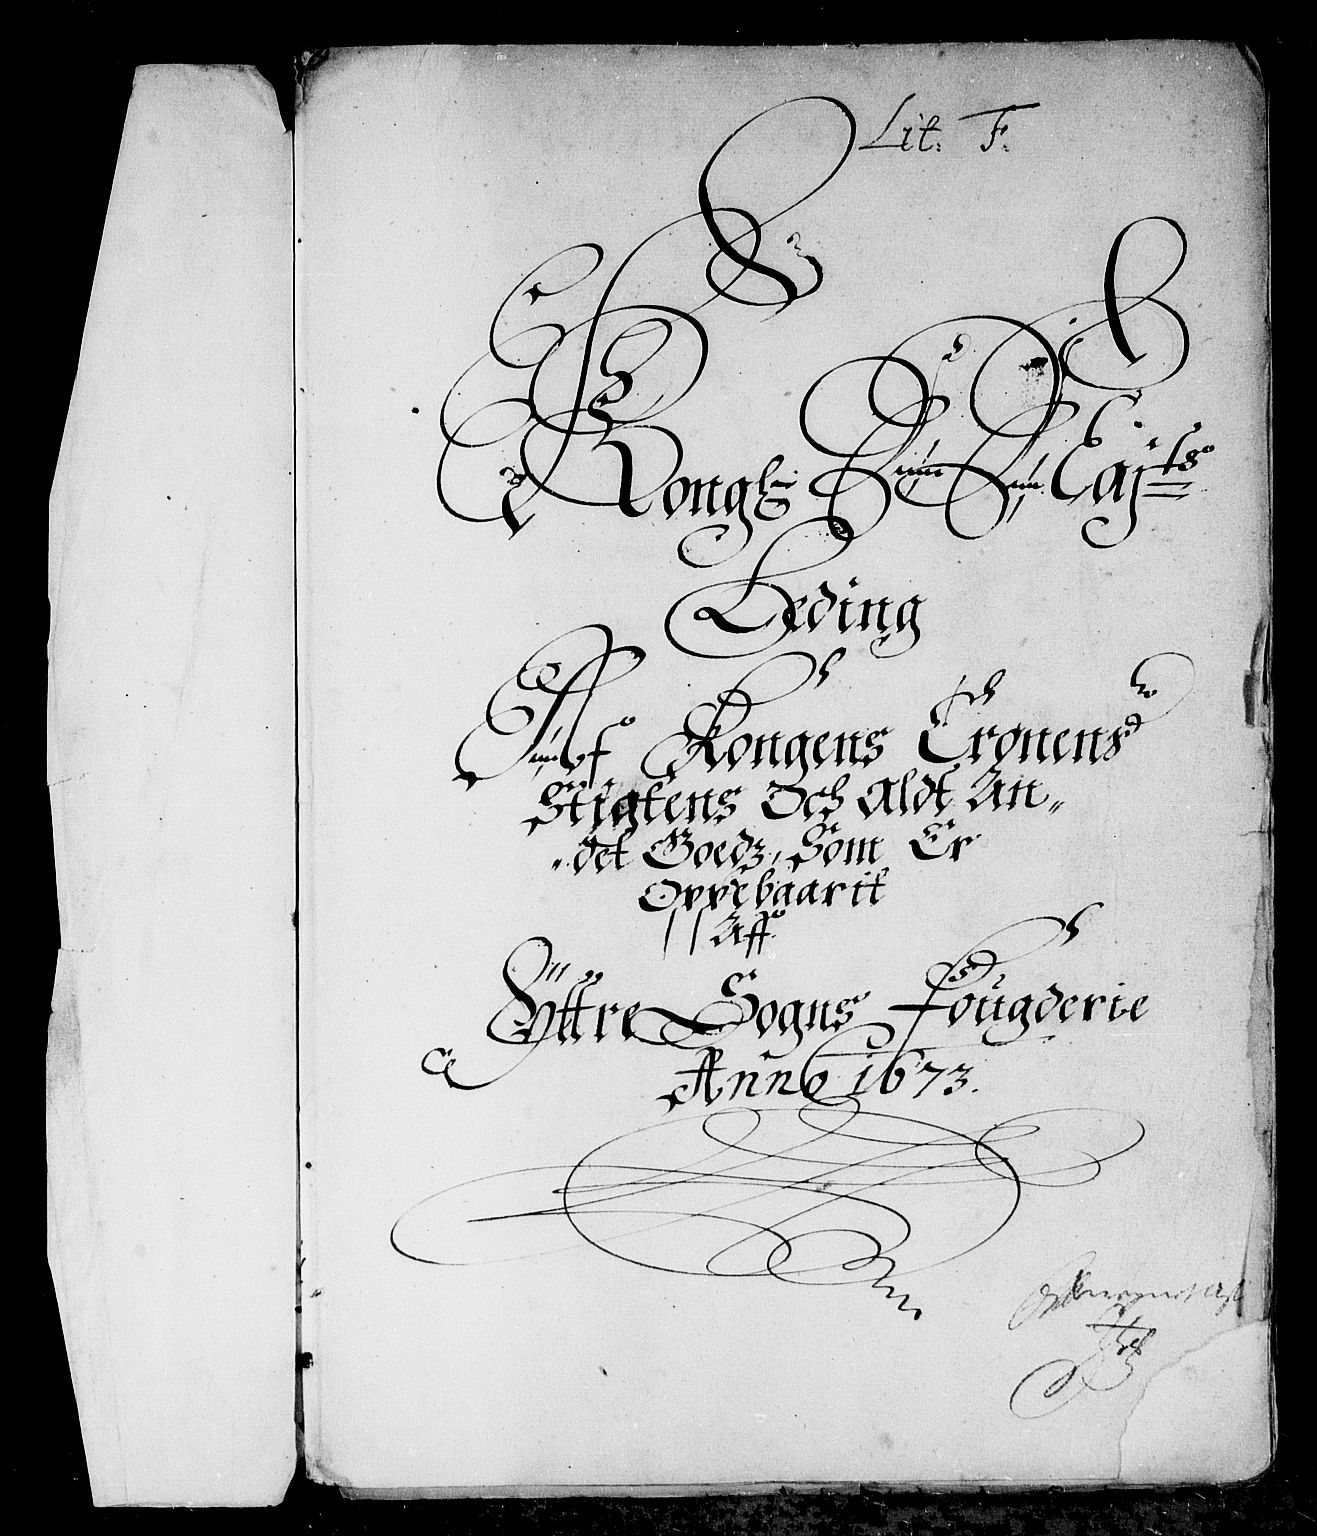 Lit: F:
Kongl: Maj:ts
Leding
Aff Kongens Cronens
Stigtens Och Aldt An„
„det Goedz, Som Er
Oppebaarit
Aff
Yttre Sogns Fougderie
Anno 1673.